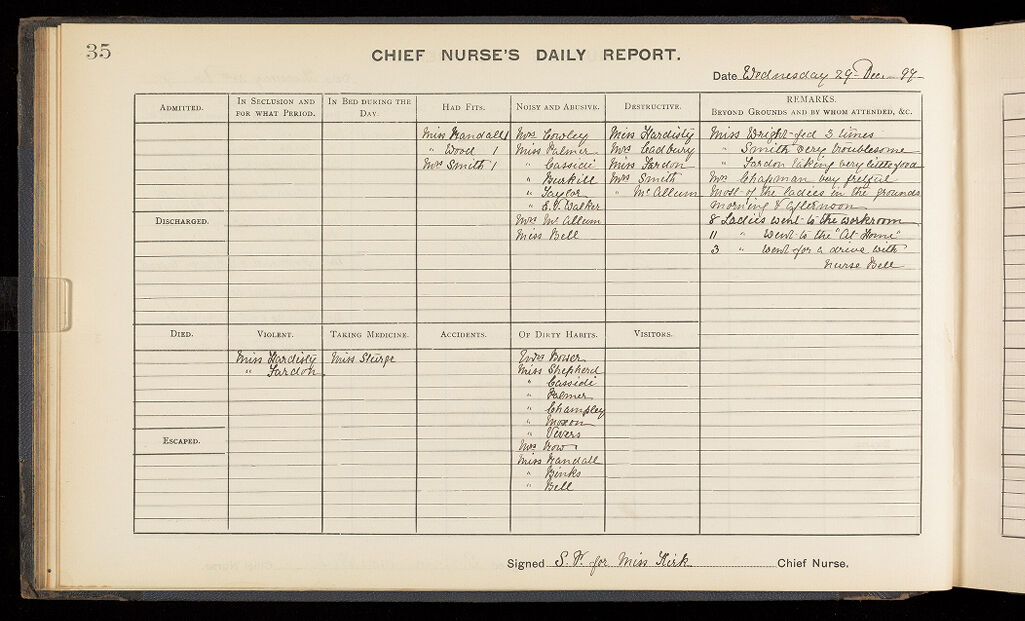 35
CHIEF NURSE'S DAILY REPORT.
Date Wednesday 29 Dec 97
ADMITTED.
IN SECLUSION AND FOR WHAT PERIOD.
IN BED DURING THE DAY.
HAD FITS.
Miss Randall 1
" Wood 1
Mrs Smith 1
NOISY AND ABUSIVE.
Mrs Cowley
Miss Palmer
" Cassidi
" Burkill
" Taylor
" E.V. Walker
Mrs McAllum
Miss Bell
DESTRUCTIVE.
Miss Hardisty
Mrs Cadbury
Miss Fardon
Mrs Smith
" McAllum
REMARKS.
BEYOND GROUNDS AND BY WHOM ATTENDED, &C.
Miss Wright fed 3 times
" Smith very troublesome
" Fardon taking very little food
Mrs Chapman very fretful
Most of the ladies in the grounds
morning & afternoon
8 Ladies went to the workroom
11 " Went to the "At Home"
3 " went for a drive with
Nurse Bell
DISCHARGED.
DIED.
VIOLENT.
Miss Hardisty
" Fardon
TAKING MEDICINE.
Miss Sturge
ACCIDENTS.
OF DIRTY HABITS.
Mrs Bower
Miss Shepherd
" Cassidi
" Palmer
" Champley
" Moxon
" Vivers
Mrs
Miss Randall
" Binks
" Bell
VISITORS.
ESCAPED.
Signed S.V. for Miss Kirk Chief Nurse.